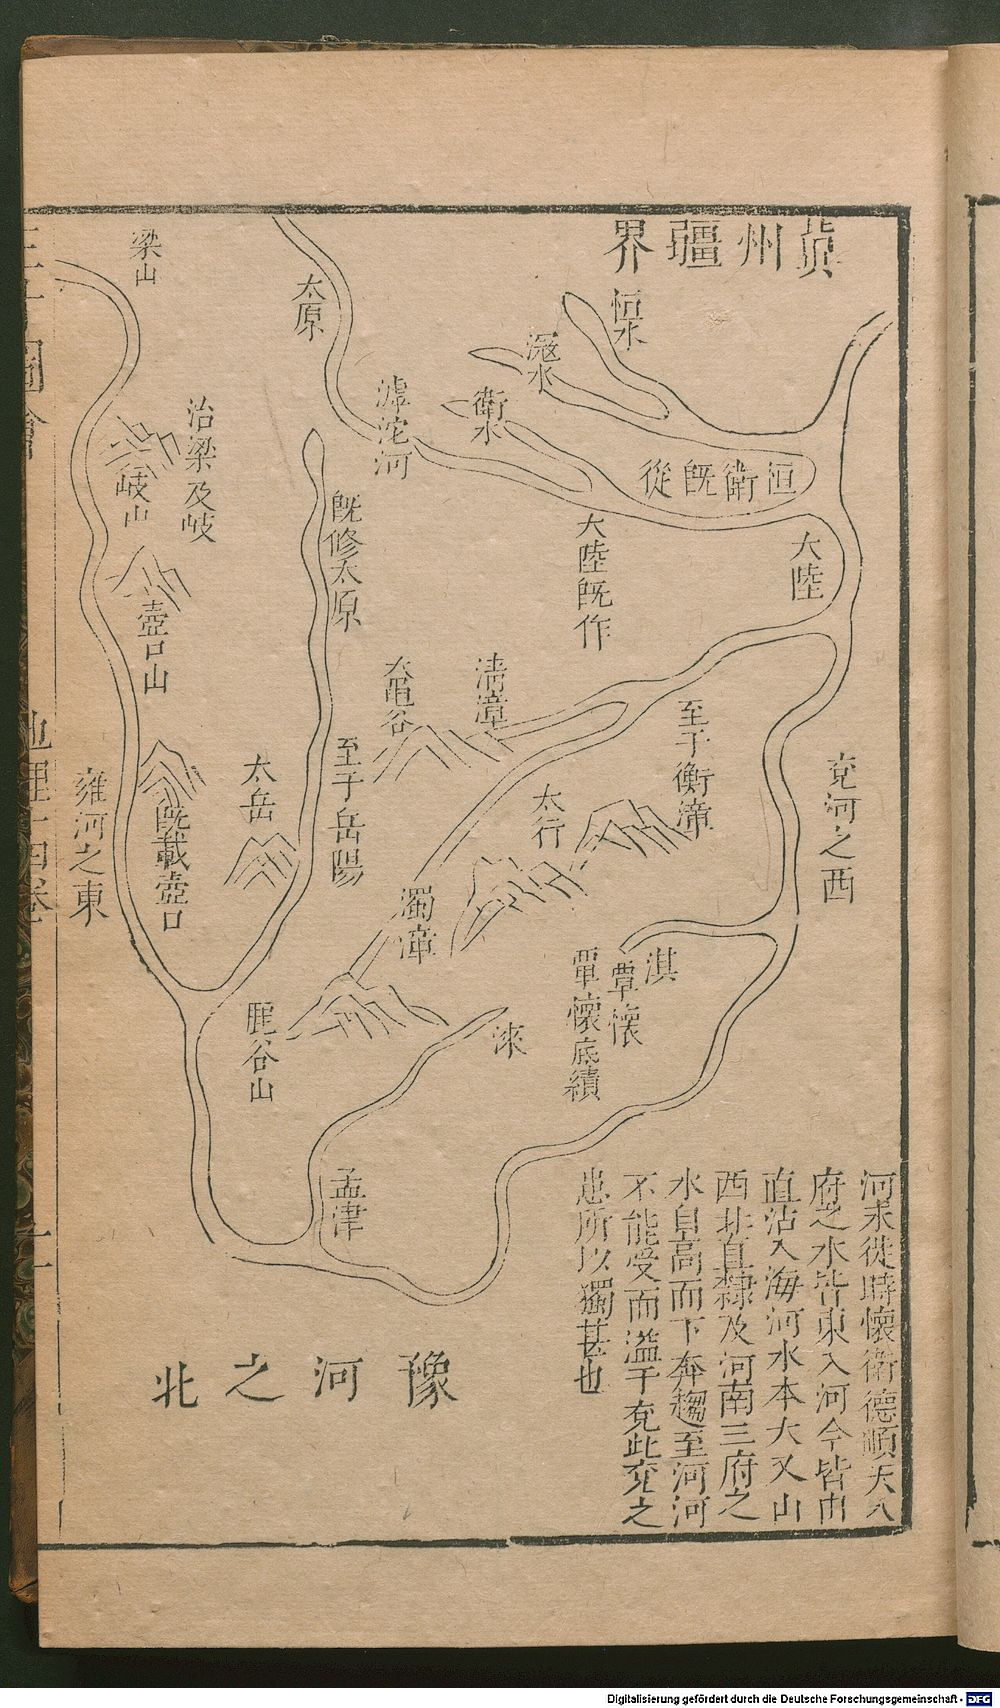 冀州疆界
恒水
滱水
衛水
恒衛既從
大陸
大陸既作
滹沱河
太原
梁山
治梁及岐
岐山
壺口山
既載壺口
雍河之東
既修太原
至于岳陽
太岳
清漳
大黽谷
至于衡漳
太行
濁漳
鹿谷山
兖河之西
淇
覃懷
覃懷底績
淶
孟津
豫河之北
河未徙時懷衛德順天八
府之水皆東入河今皆由
直沽入海河水本大又山
西北直隸及河南三府之
水自高而下奔趨至河河
不能受而溢于兖此兖之
患所以獨甚也
地理十四卷
Digitalisierung gefördert durch die Deutsche Forschungsgemeinschaft - DFG